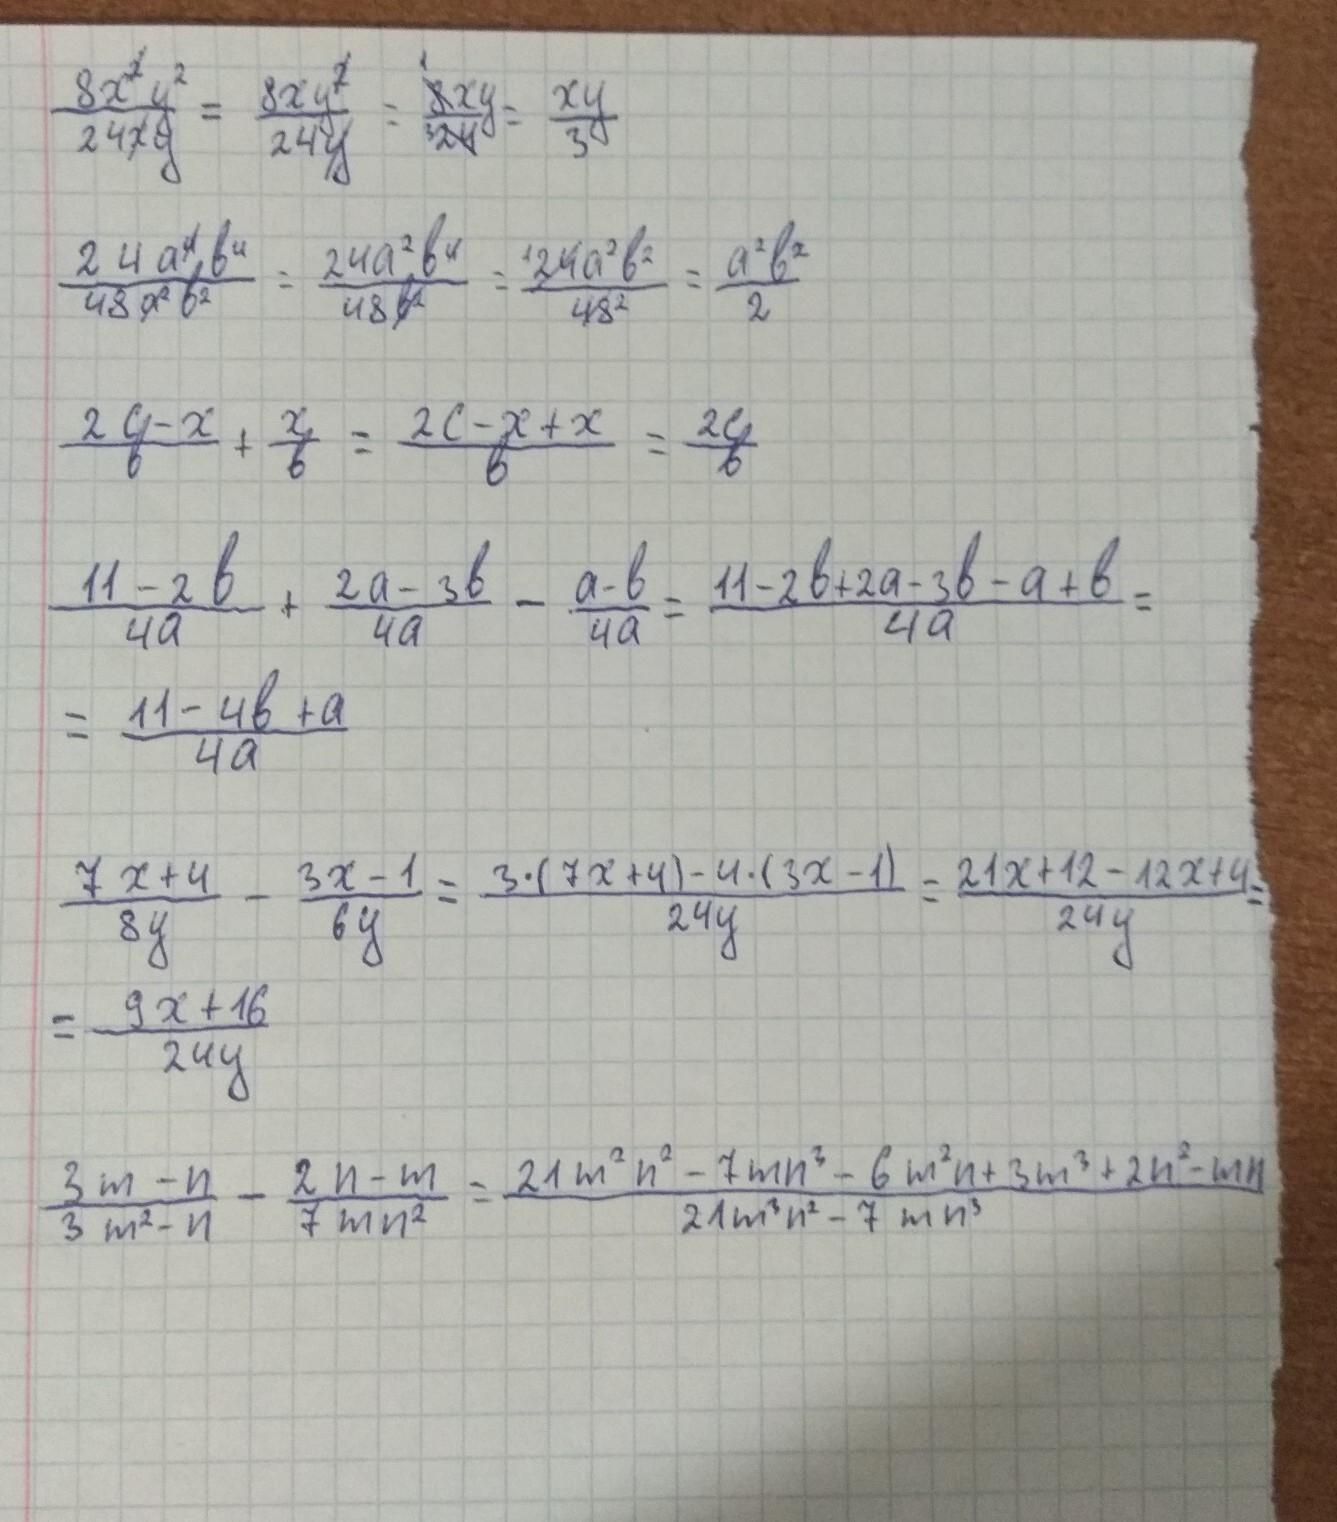 8x²y²/24xy = 8xy²/24y = 8xy/24 = xy/3
24a⁴b⁴/48a²b² = 24a²b⁴/48b² = 24a²b²/48 = a²b²/2
(2y-x)/b + x/b = (2c-x+x)/b = 2y/b
(11-2b)/4a + (2a-3b)/4a - (a-b)/4a = (11-2b+2a-3b-a+b)/4a =
= (11-4b+a)/4a
(7x+4)/8y - (3x-1)/6y = (3·(7x+4)-4·(3x-1))/24y = (21x+12-12x+4)/24y =
= (9x+16)/24y
(3m-n)/(3m²-n) - (2n-m)/7mn² = (21m²n²-7mn³-6m²n+3m³+2n²-mn)/(21m³n²-7mn³)